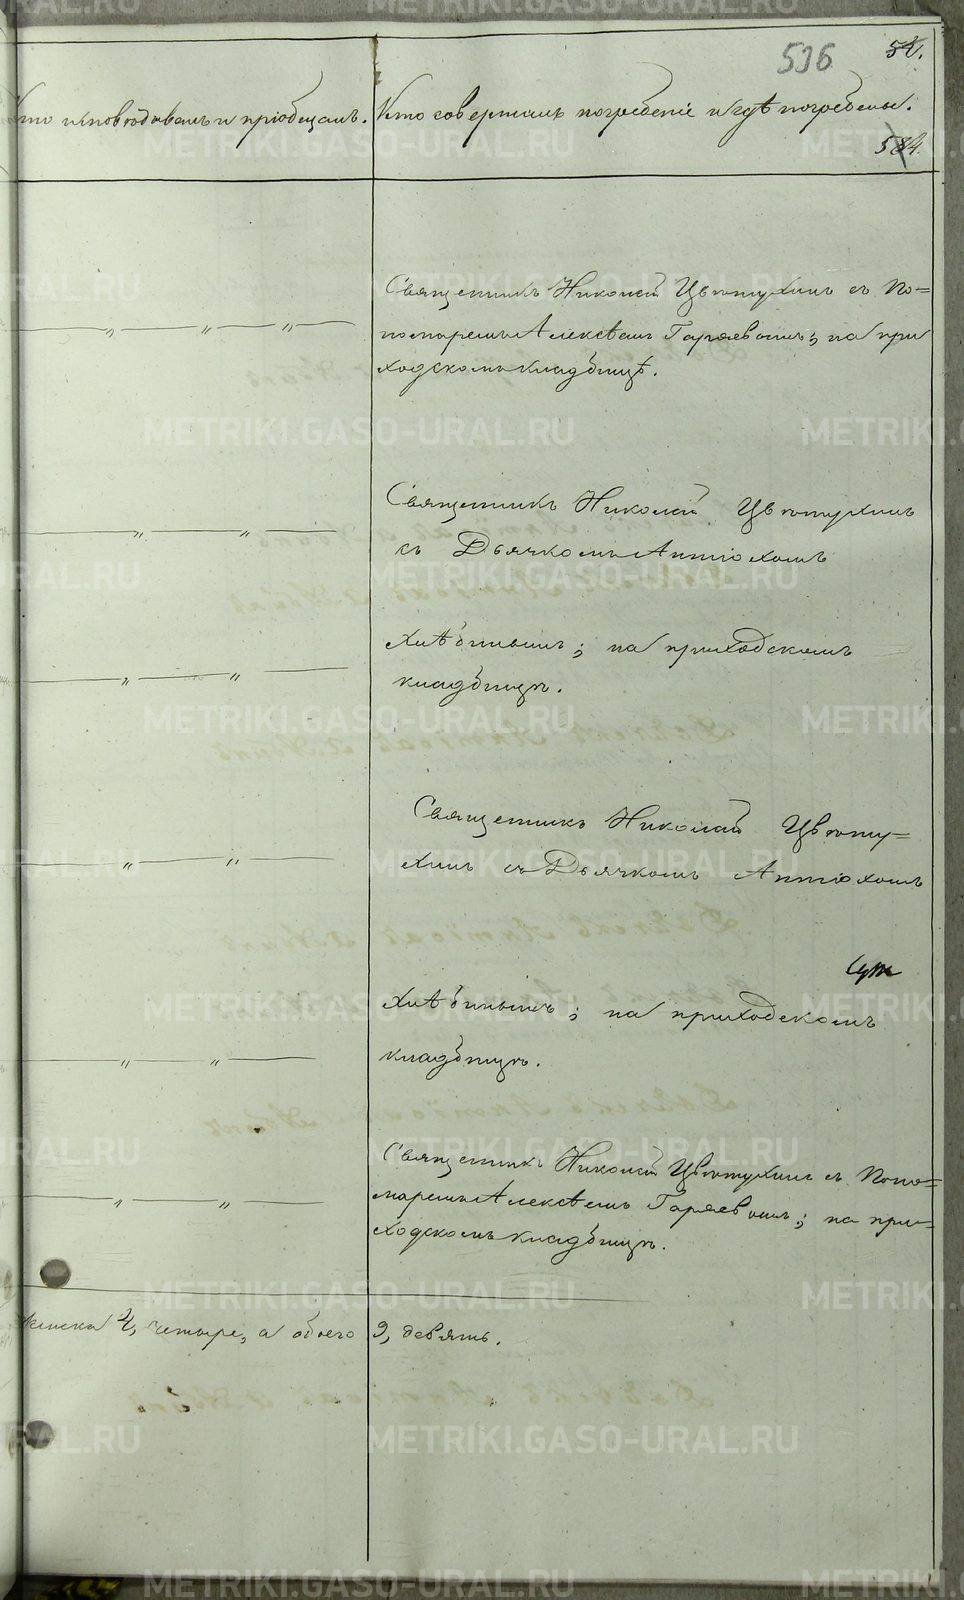 536
52.
Кто исповѣдывалъ и пріобщалъ. Кто совершалъ погребеніе и гдѣ погребены.
584
Священникъ Николай Цвѣтухинъ съ По=
номаремъ Алексѣемъ Гаряевымъ; на при
ходскомъ кладбищѣ.
Священникъ Николай Цвѣтухинъ
съ Дьячкомъ Антіохомъ
Хлѣбинымъ; на приходскомъ
кладбищѣ.
Священникъ Николай Цвѣту=
хинъ съ Дьячкомъ Антіохомъ
Хлѣбинымъ; на приходскомъ
кладбищѣ.
Священникъ Николай Цвѣтухинъ съ Поно=
маремъ Алексѣемъ Гаряевымъ; на при=
ходскомъ кладбищѣ.
женска 4, четыре, а обоего 9, девять.
METRIKI.GASO-URAL.RU